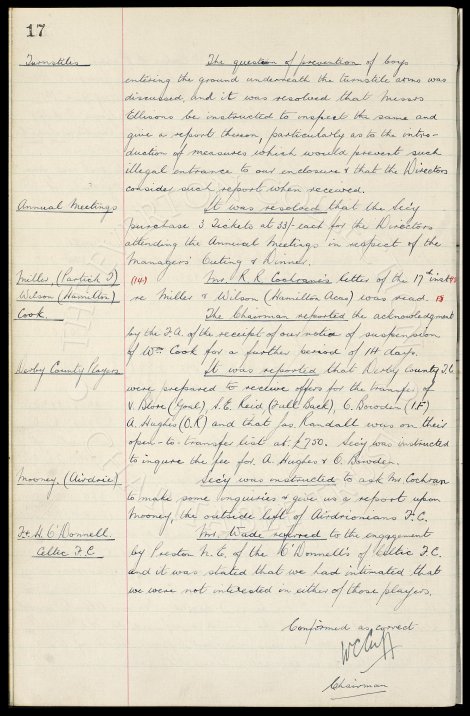 17
Turnstiles
The question of prevention of boys
entering the ground underneath the turnstile arms was
discussed, and it was resolved that Messrs
Ellisons be instructed to inspect the same and
give a report thereon, particularly as to the intro-
duction of measures which would prevent such
illegal entrance to our enclosure & that the Directors
consider such report when received.
Annual Meetings
It was resolved that the Secy
purchase 3 Tickets at 33/- each for the Directors
attending the Annual Meetings in respect of the
Managers' Outing & Dinner.
Miller, (Partick T)
Wilson (Hamilton)
(14)
Mr. R. R. Cochrane's letter of the 17th inst
re Miller & Wilson (Hamilton Acas) was read.
Cook.
The Chairman reported the acknowledgment
by the F.A. of the receipt of our notice of suspension
of Wm. Cook for a further period of 14 days.
Derby County Players
It was reported that Derby County F.C.
were prepared to receive offers for the transfer of
V. Blore (Goal), S.E. Reid (Full Back), E. Bowden (I.F)
A. Hughes (O.R) and that Jas. Randall was on their
open-to-transfer list at £750. Secy was instructed
to inquire the fee for A. Hughes & O. Bowden.
Mooney, (Airdrie)
Secy was instructed to ask Mr. Cochran
to make some inquiries & give us a report upon
Mooney, the outside left of Airdrionians F.C.
F. & H. O'Donnell
Celtic F.C.
Mr. Wade referred to the engagement
by Preston N.E. of the O'Donnell's of Celtic F.C.
and it was stated that we had intimated that
we were not interested in either of those players.
Confirmed as correct
W C Cuff
Chairman